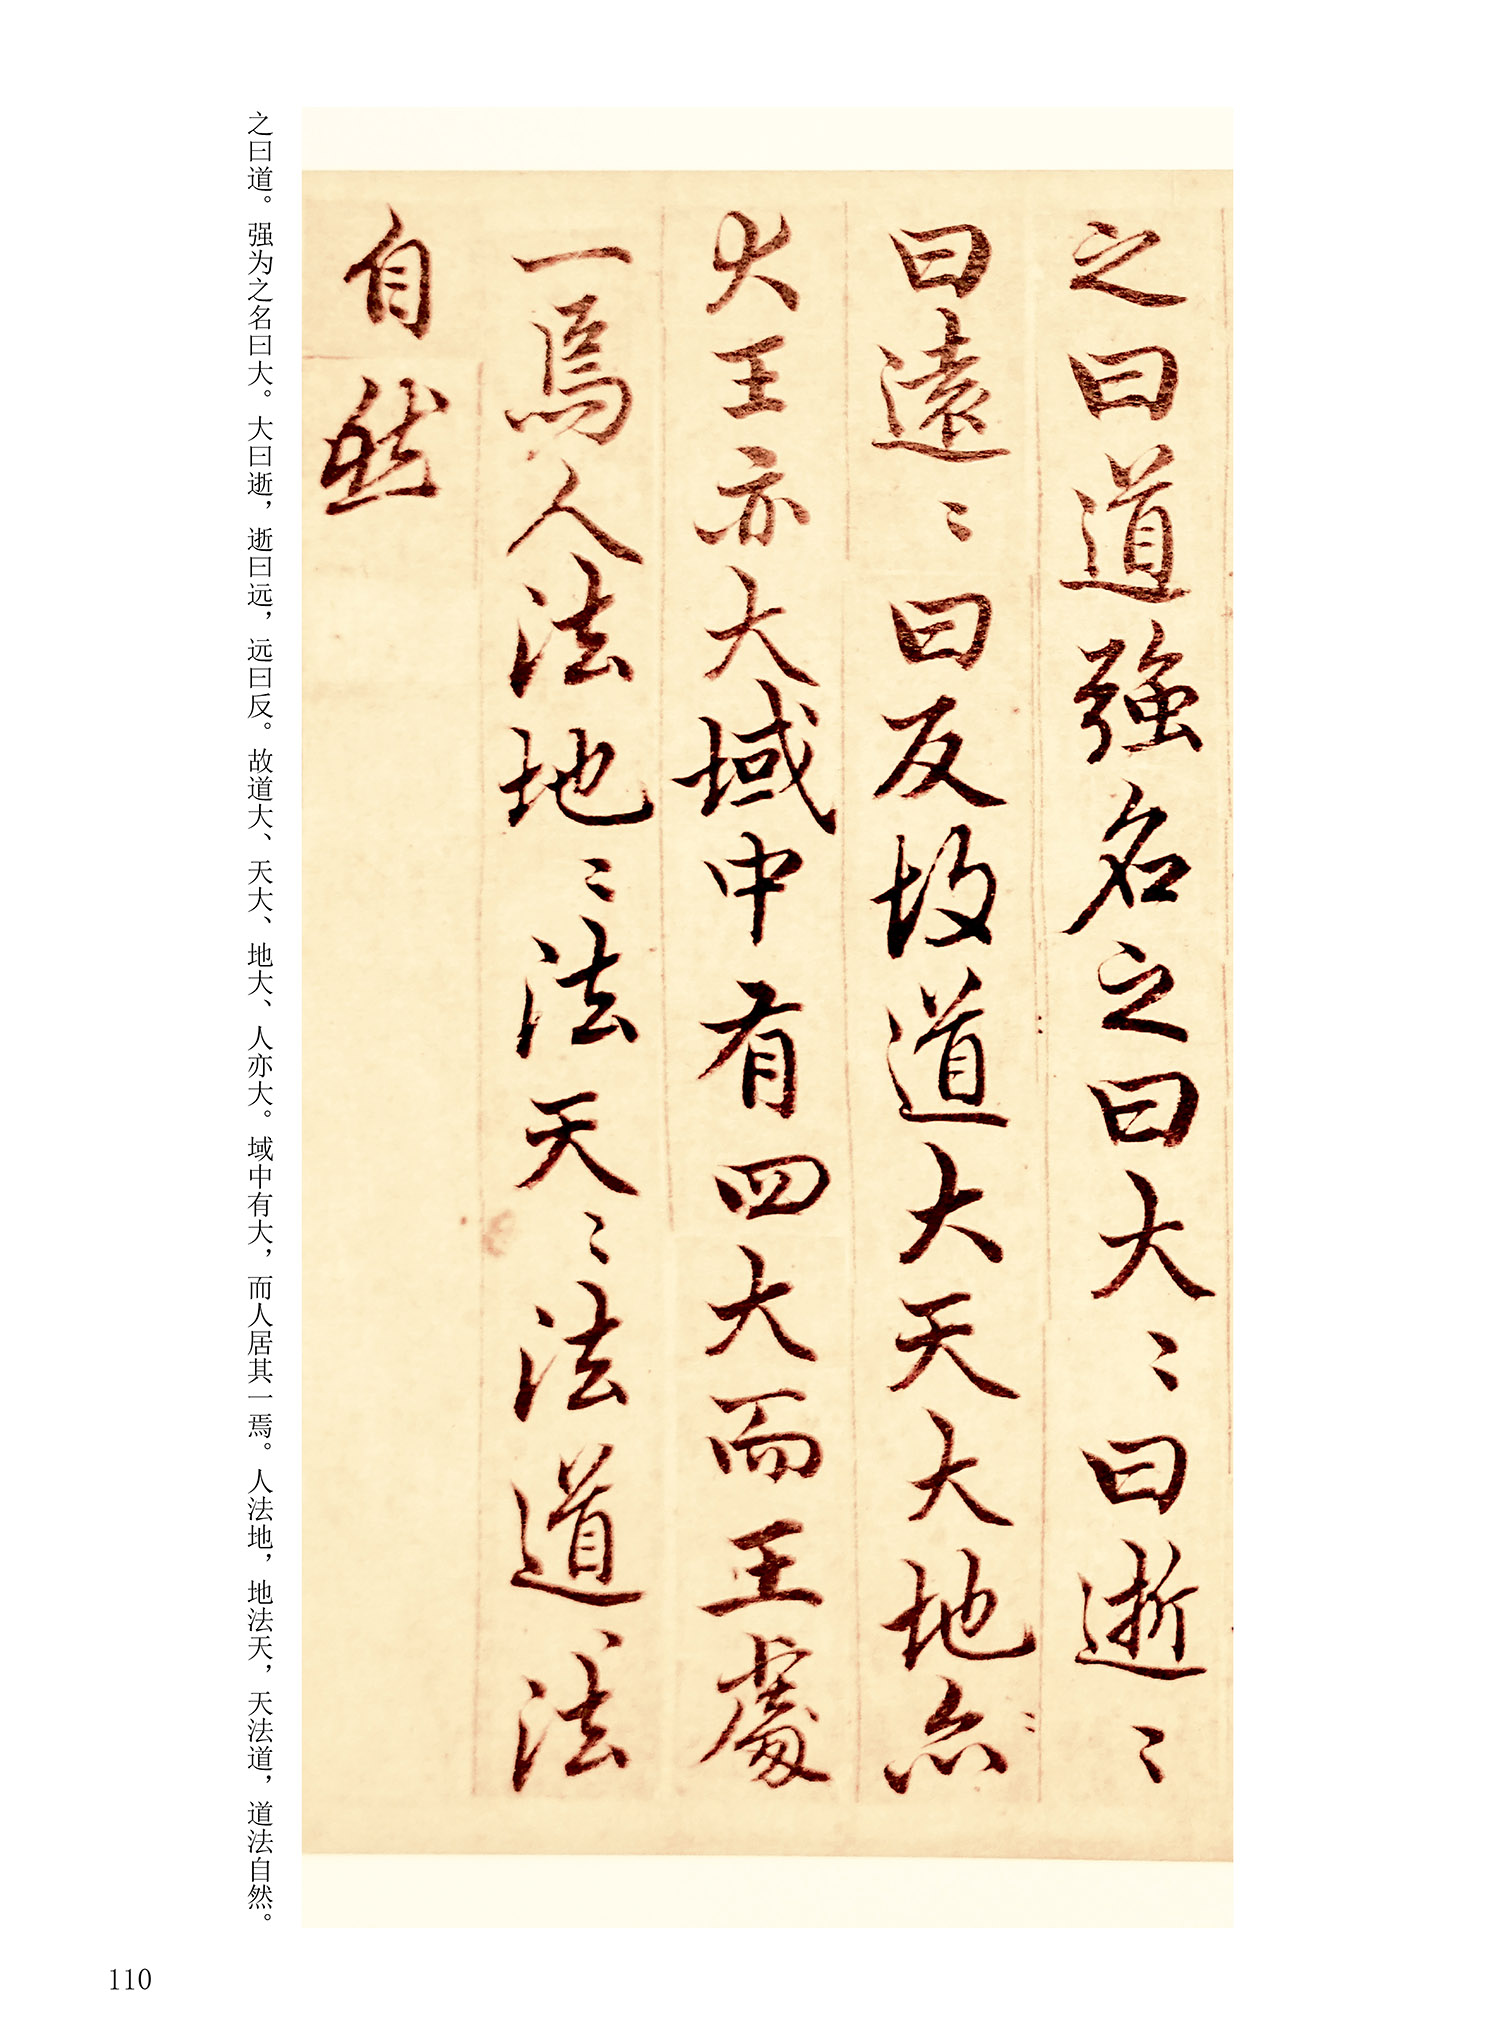 之曰道強名之曰大〻曰逝〻
曰遠〻曰反故道大天大地亦
大王亦大域中有四大而王處
一焉人法地〻法天〻法道〻法
自然
之曰道。强为之名曰大。大曰逝，逝曰远，远曰反。故道大、天大、地大、人亦大。域中有大，而人居其一焉。人法地，地法天，天法道，道法自然。
110